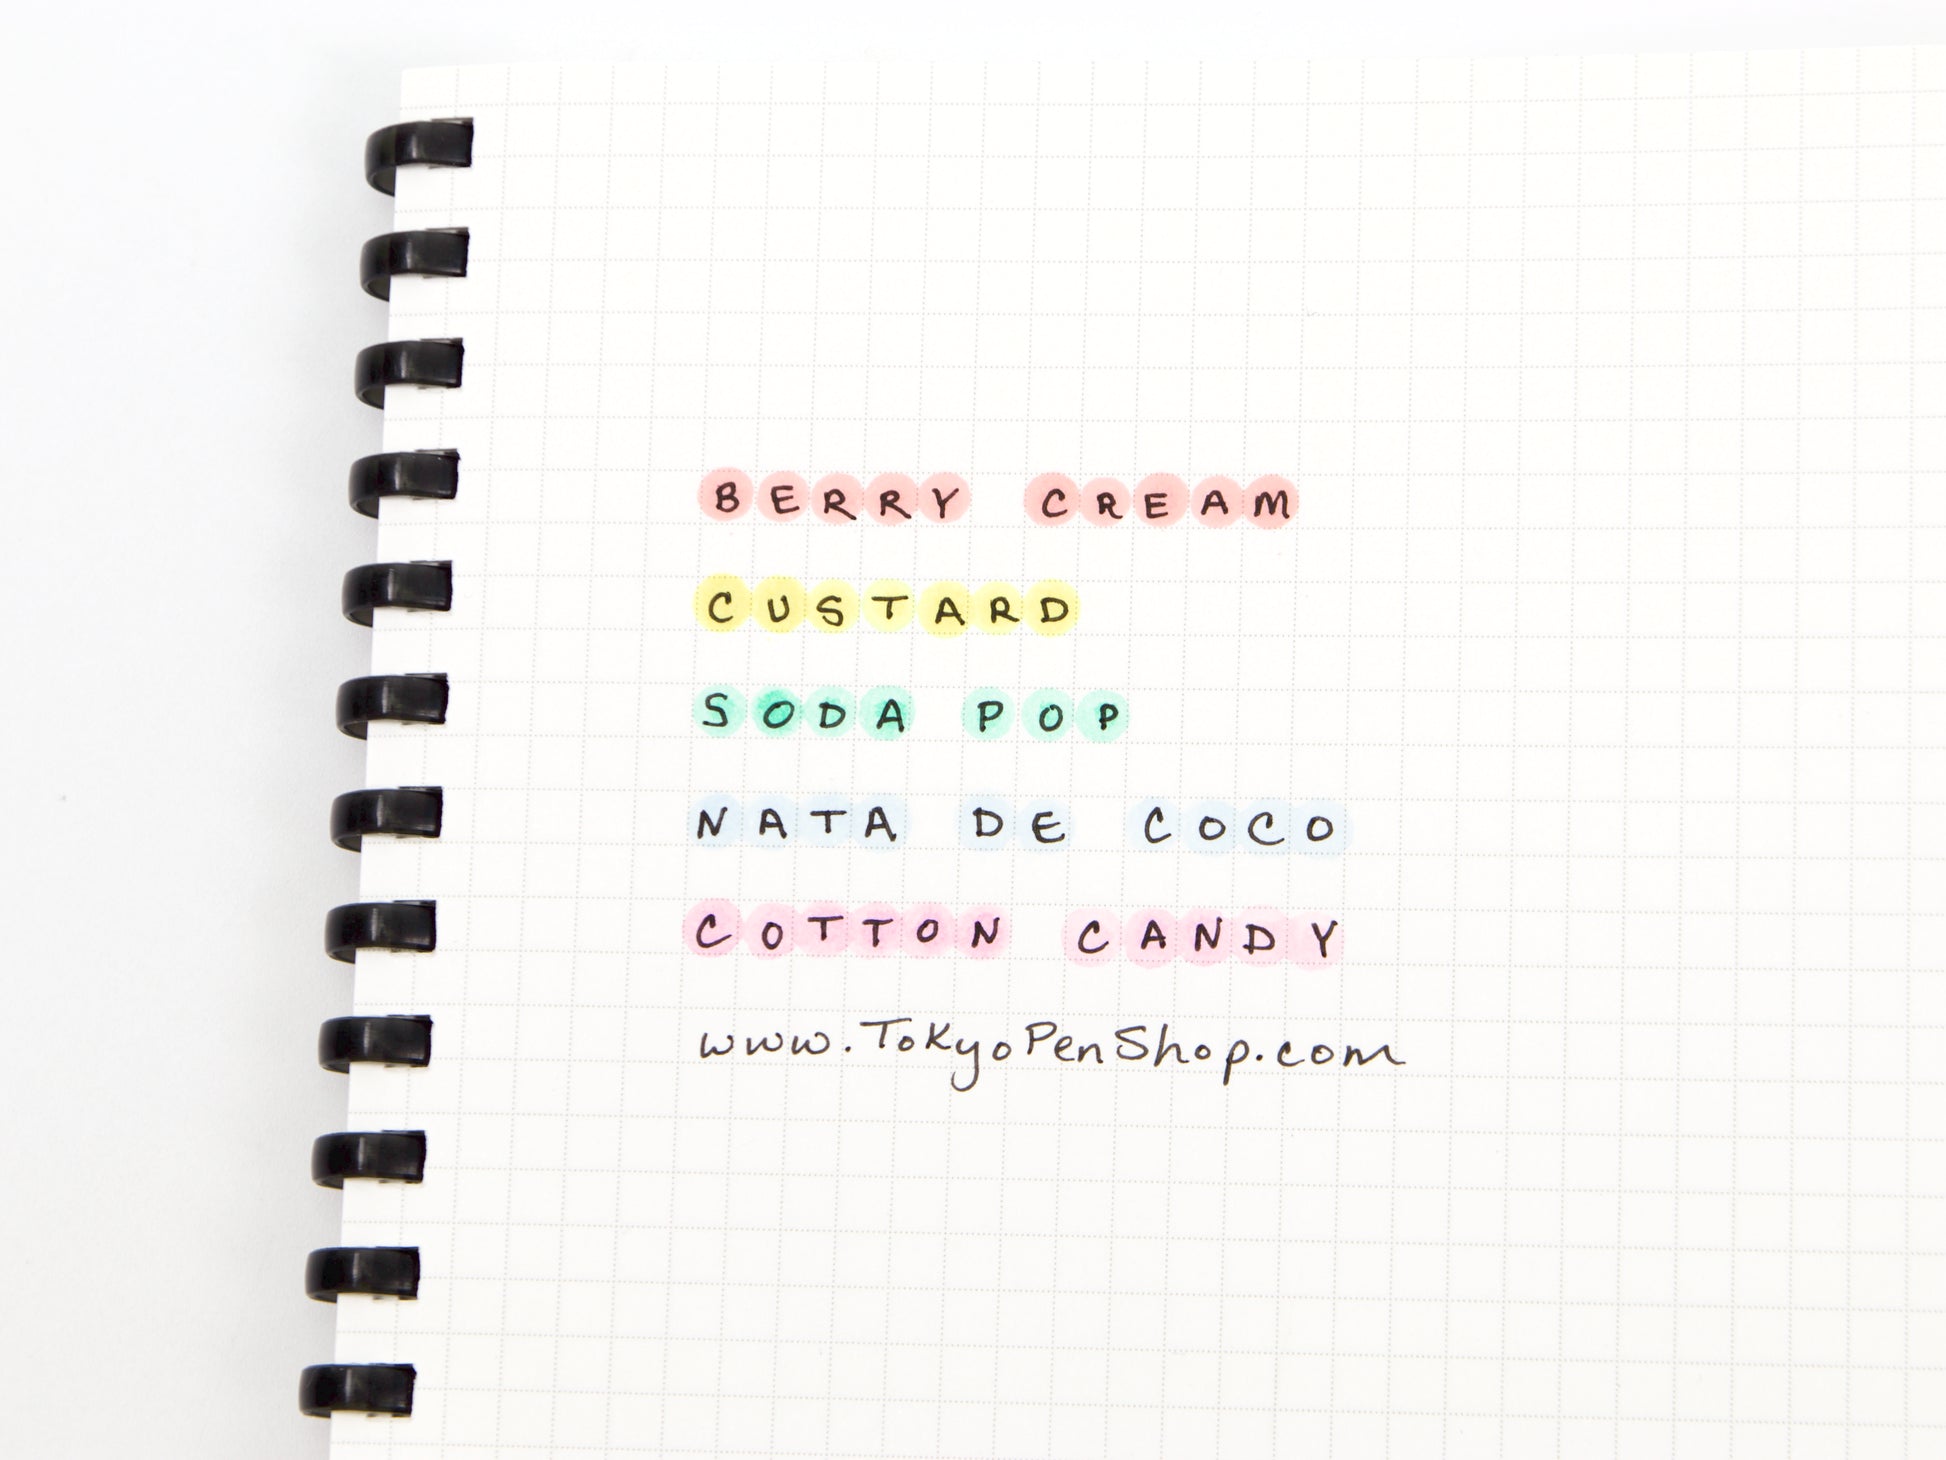 BERRY CREAM
CUSTARD
SODA POP
NATA DE COCO
COTTON CANDY
www.TokyoPenShop.com